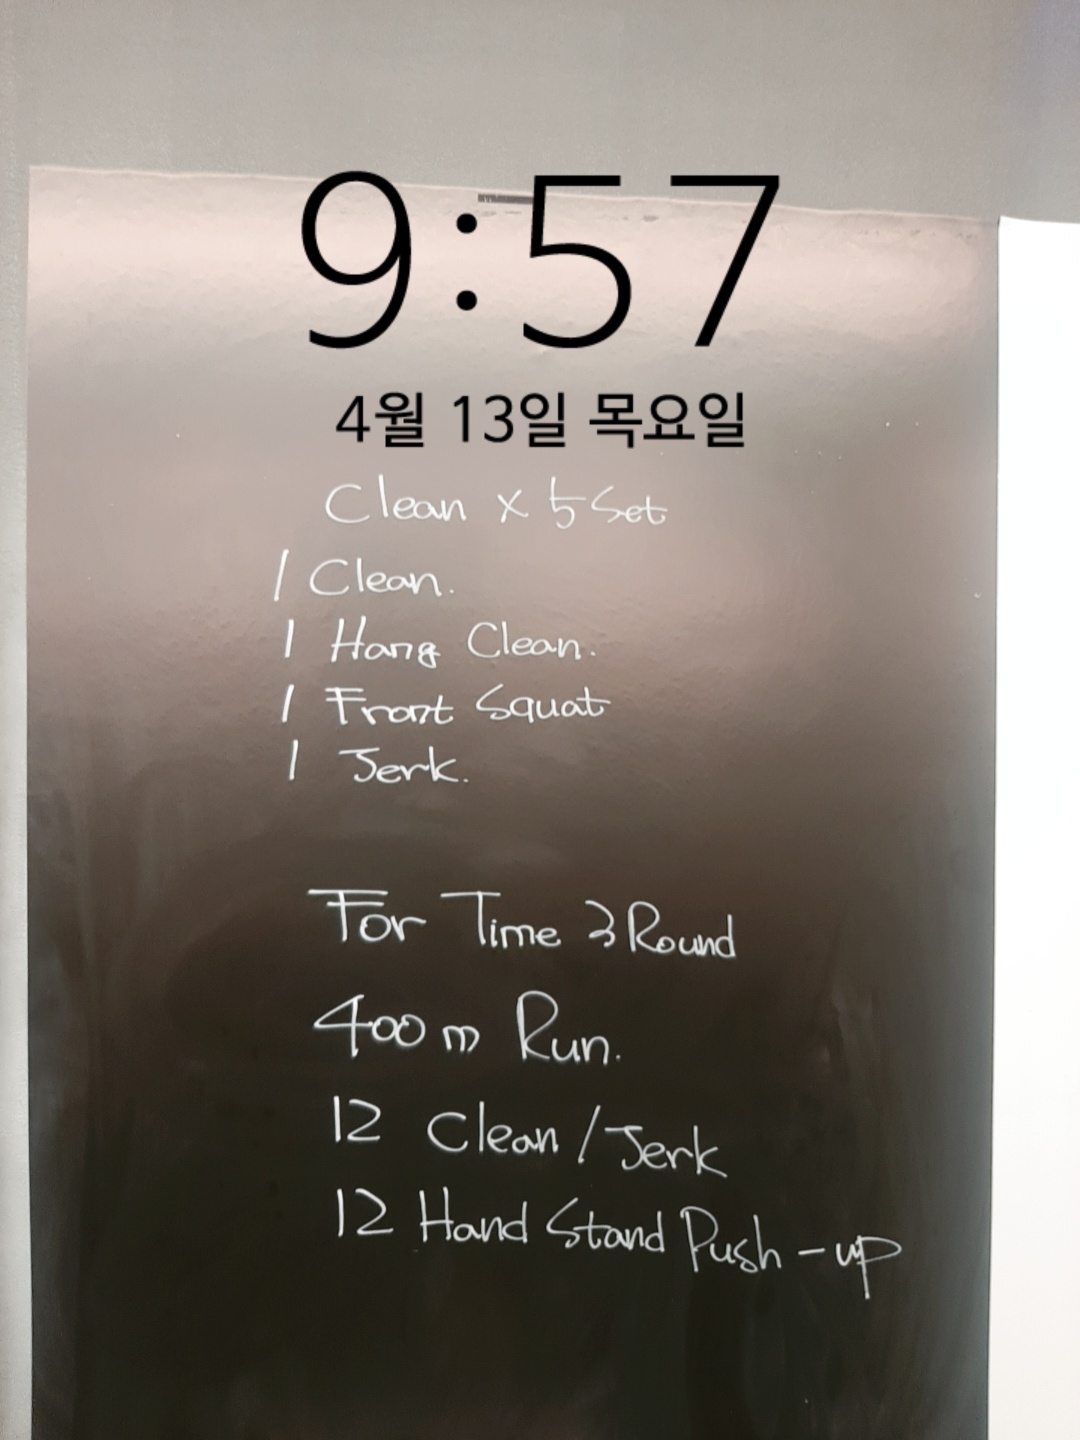 9:57
4월 13일 목요일
Clean x 5 Set
1 Clean.
1 Hang Clean.
1 Front Squat
1 Jerk.
For Time 3 Round
400 m Run.
12 Clean / Jerk
12 Hand Stand Push-up